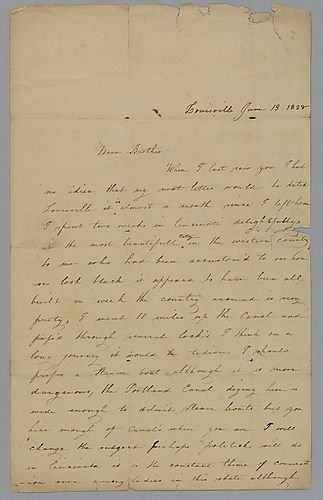 Louisville June 13. 1828
Dear Brother
When I last saw you I had
no idea that my next letter would be dated
Louisville it is almost a month since I left home
I spent two weeks in Cincinati delightfully
is the most beautifull city in the western country
to me who had been accustom'd to see hou
ses look black it appeard to have been all
built in week the country around is very
pretty, I went 10 miles up the Canal and
pass'd through several lock's, I think on a
long journey it would be tedious I should
prefer a Steam boat although it is more
dangerous, the Portland Canal diging here is
wide enough to admit Steam boats but you
hear enough of Canal's when you are I will
change the subject perhaps politicks will do
in Cincinata it is the constant theme of conversat
ion even among ladies in this state although